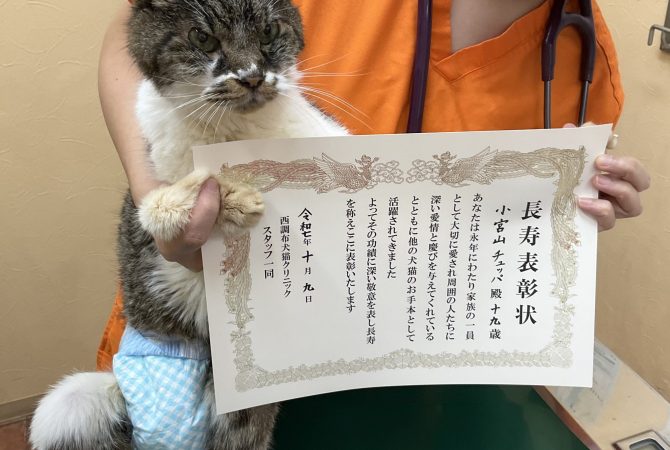 長寿表彰状
小宮山チュッパ 殿 十九歳
あなたは永年にわたり家族の一員
として大切に愛され周囲の人たちに
深い愛情と慶びを与えてくれている
とともに他の犬猫のお手本として
活躍されてきました
よってその功績に深い敬意を表し長寿
を称えここに表彰いたします
令和七年 十月 九日
西調布犬猫クリニック
スタッフ一同